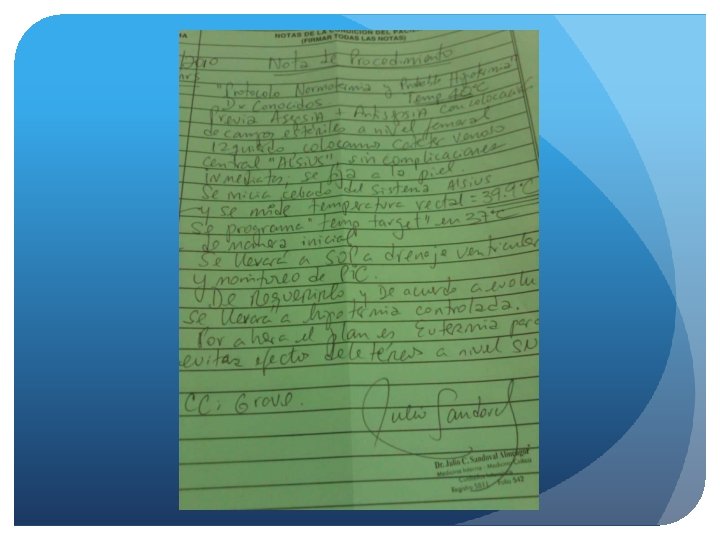 NOTAS DE LA CONDICIÓN DEL PACIE
(FIRMAR TODAS LAS NOTAS)
Nota de Procedimiento
"Protocolo Normotermia y Probable Hipotermia"
Dx Conocidos Temp
Previa Asepsia + Antisepsia con colocación
de campos estériles a nivel femoral
izquierdo colocamos Catéter Venoso
central "Alsius", sin complicaciones
inmediatas; se fija a la piel.
Se inicia cebado del sistema Alsius
y se mide temperatura rectal = 39.9°C
Se programa "temp target" en 37°C
de manera inicial
Se llevará a SOP a drenaje ventricular
y monitoreo de PIC.
De requerirlo y De acuerdo a evolu
se llevará a hipotermia controlada.
Por ahora el plan es Eutermia para
evitar efecto deletéreos a nivel SN
CC: Grave.
Julio Sandoval
Dr. Julio C. Sandoval
Medicina Interna - Medicina Crítica
Registro 5911 Folio 542